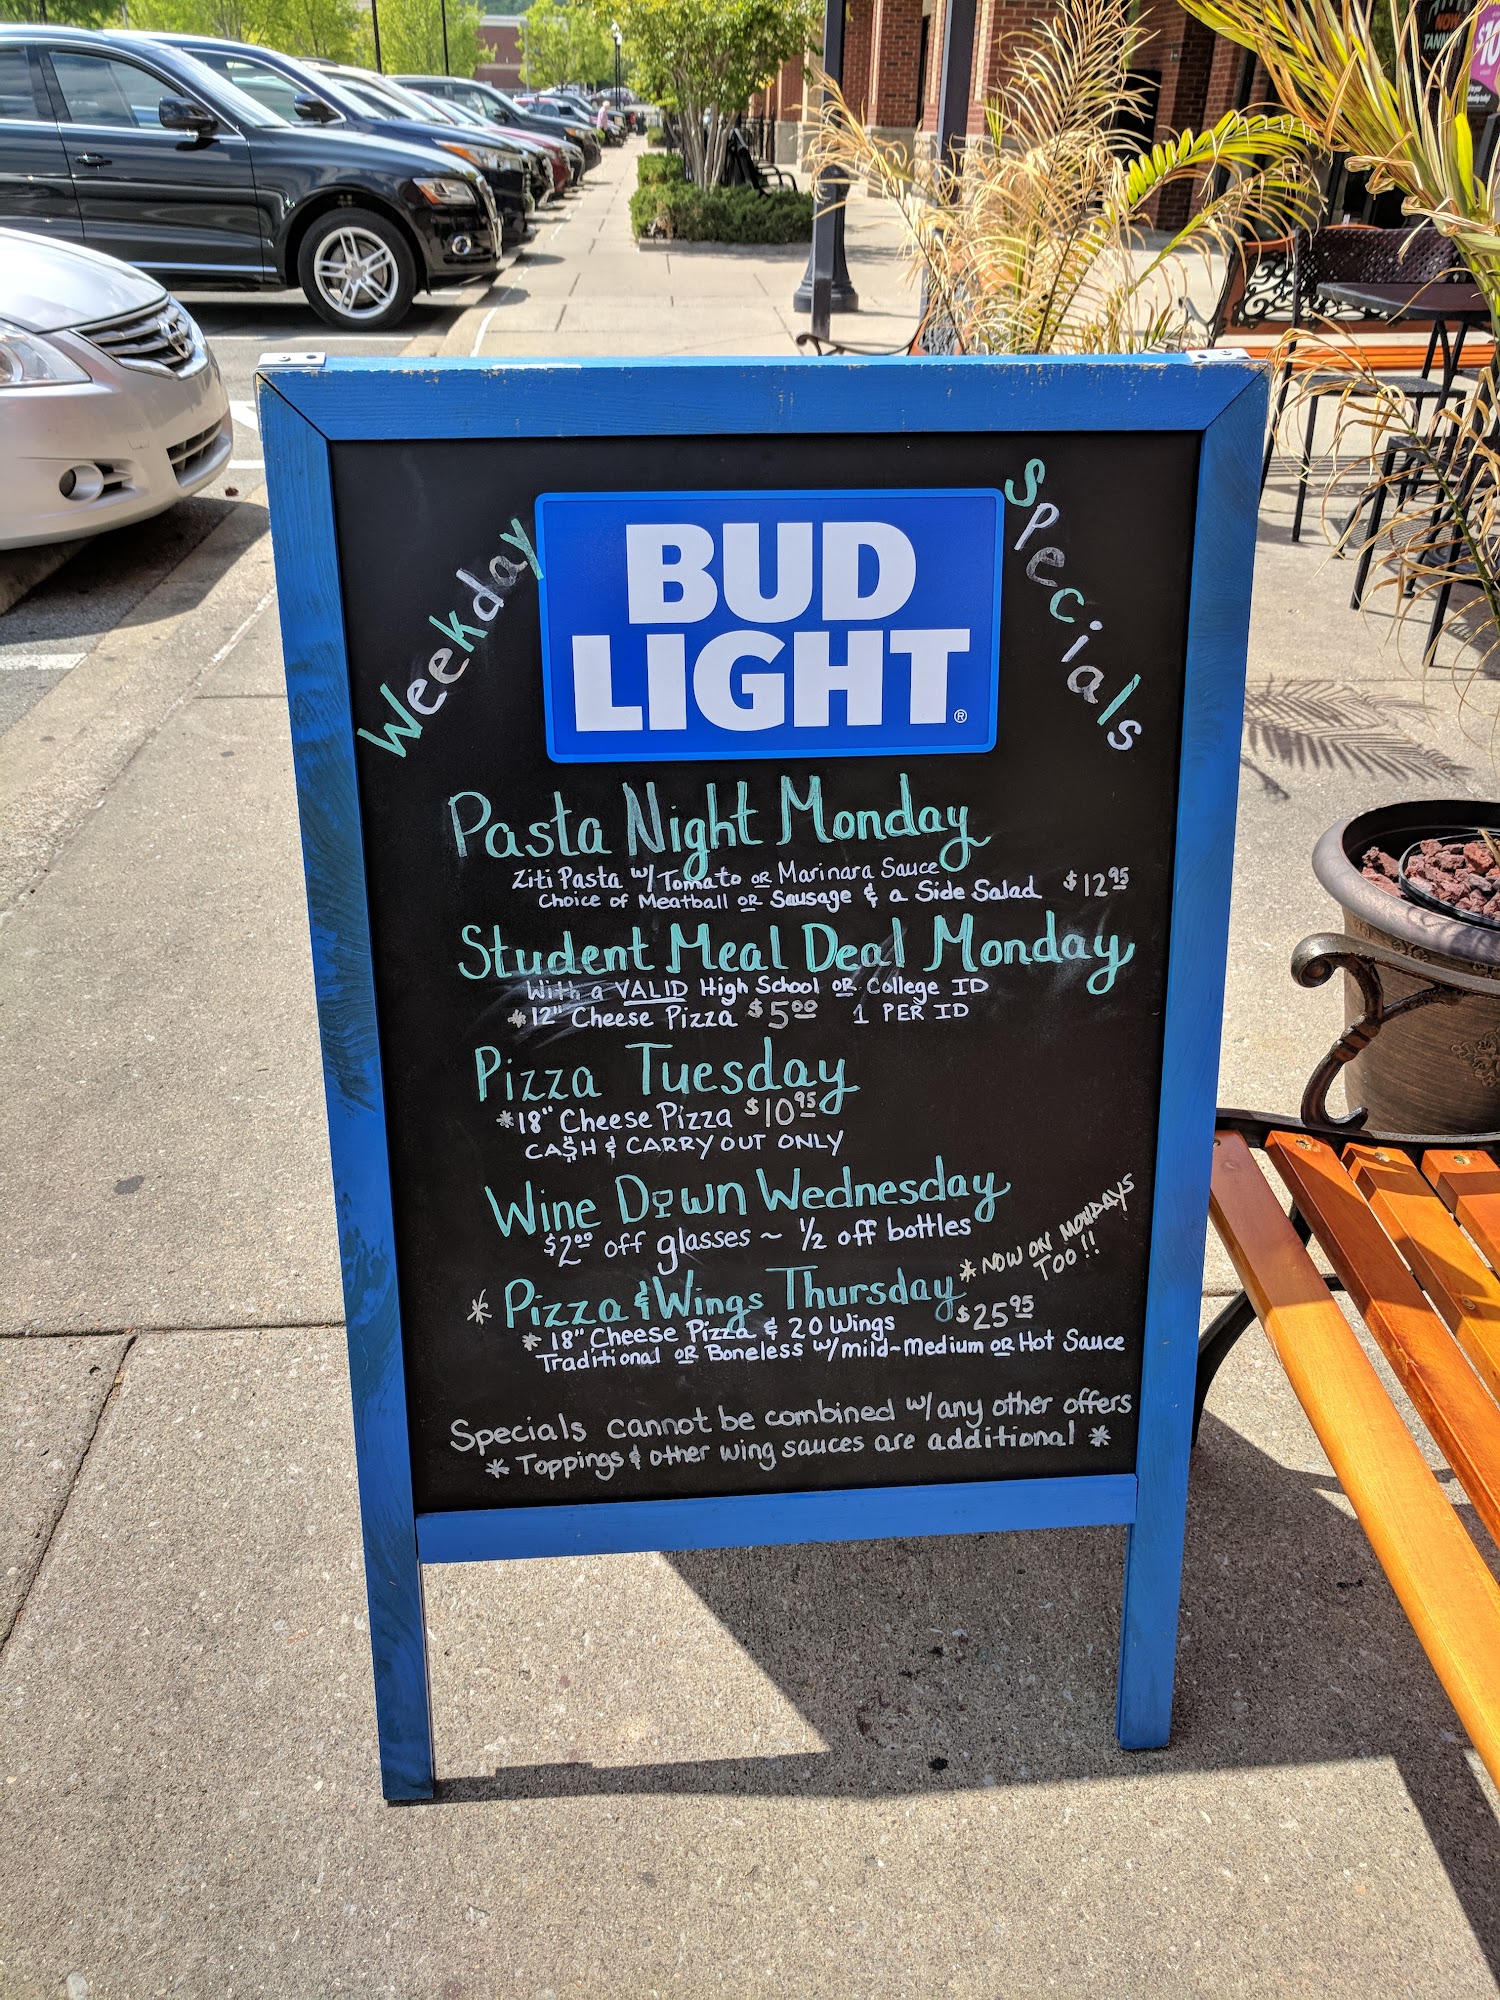 Weekday Specials
BUD
LIGHT®
Pasta Night Monday
Ziti Pasta w/ Tomato OR Marinara Sauce
Choice of Meatball OR Sausage & a Side Salad $12.95
Student Meal Deal Monday
With a VALID High School OR College ID
*12" Cheese Pizza $5.00 1 PER ID
Pizza Tuesday
*18" Cheese Pizza $10.95
CA$H & CARRY OUT ONLY
Wine Down Wednesday
$2.00 off glasses ~ 1/2 off bottles
*NOW ON MONDAYS
TOO!!
* Pizza & Wings Thursday $25.95
* 18" Cheese Pizza & 20 Wings
Traditional OR Boneless w/ mild-Medium OR Hot Sauce
Specials cannot be combined w/ any other offers
* Toppings & other wing sauces are additional *
NOW
$10